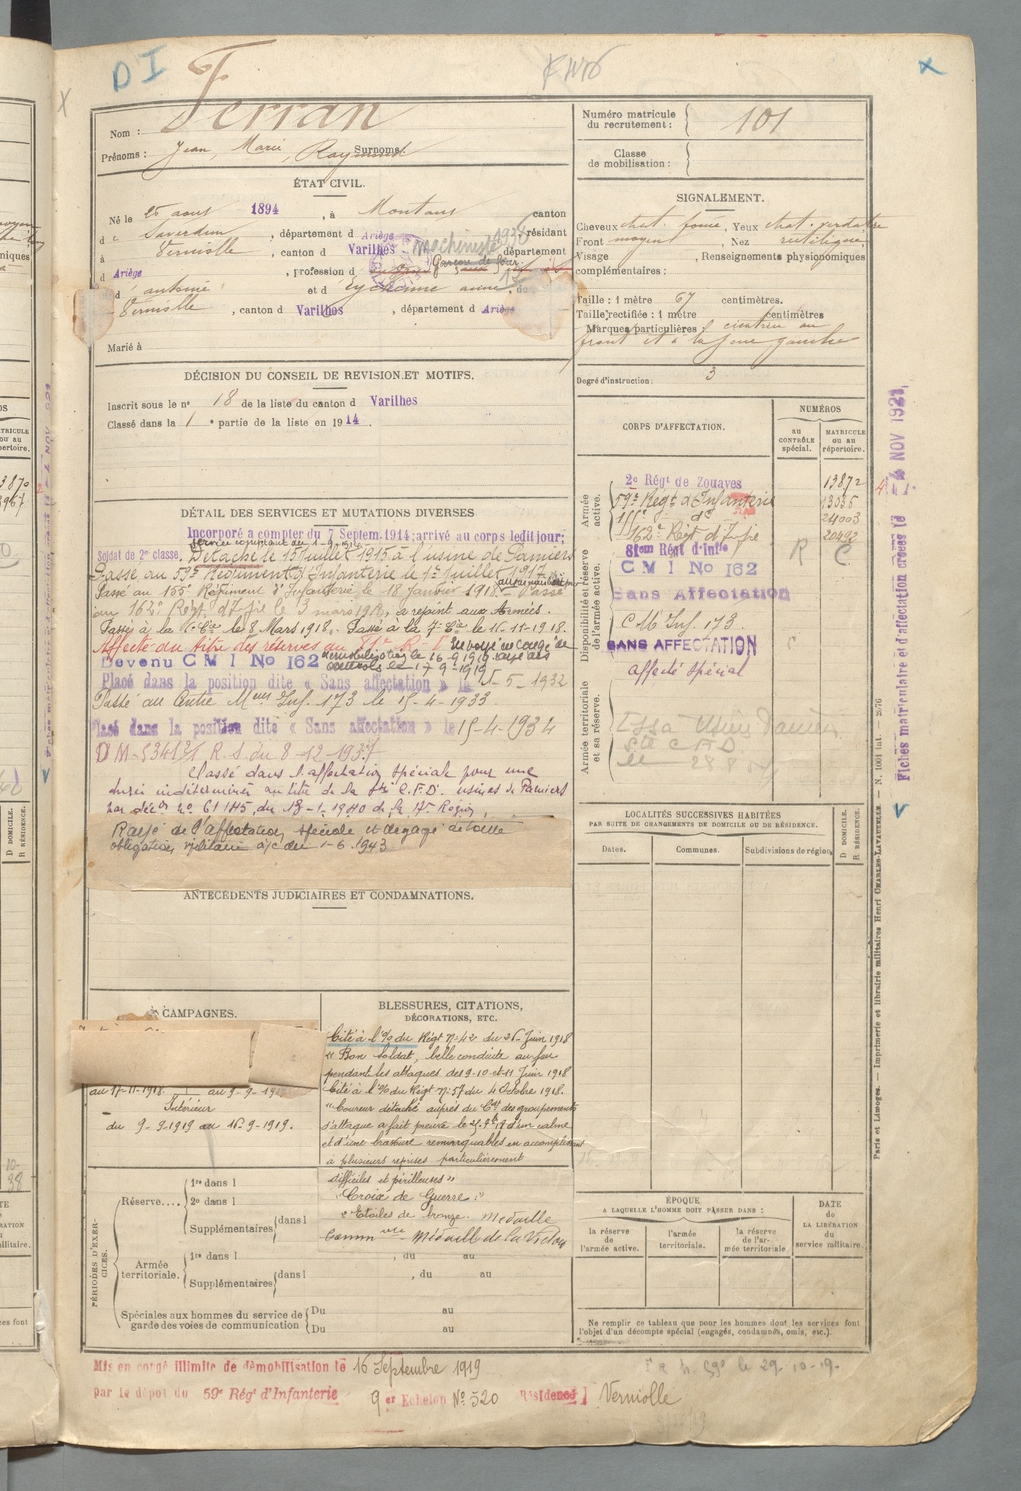 D I
Ferran
Nom :
Prénoms : Jean, Marie, Raymond
Surnoms
Numéro matricule du recrutement : 101
Classe de mobilisation :
ÉTAT CIVIL.
Né le 25 aout 1894, à Montaus canton
d e Saverdun, département d Ariège, résidant
à Verniolle, canton d Varilhes département
d Ariège, profession d Garçon de four machiniste 1938
d' antoine et d
Verniolle, canton d Varilhes, département d Ariège
Marié à
SIGNALEMENT.
Cheveux chat. foncé, Yeux chat. verdatre
Front moyen, Nez rectiligne
Visage , Renseignements physionomiques
complémentaires :
Taille : 1 mètre 67 centimètres.
Taille rectifiée : 1 mètre centimètres
Marques particulières : cicatrice au
front et à la joue gauche
Degré d'instruction : 3
DÉCISION DU CONSEIL DE REVISION ET MOTIFS.
Inscrit sous le n° 18 de la liste du canton d Varilhes
Classé dans la 1 e partie de la liste en 1914.
CORPS D'AFFECTATION.
NUMÉROS
AU CONTRÔLE spécial.
MATRICULE OU AU répertoire.
Armée active.
2e Régt de Zouaves 13872
59e Régt d'Infanterie 13036
155e do 24003
162e Régt d'Infie 20492
Disponibilité et réserve de l'armée active.
81em Régt d'Infie R C
C M I No 162
Sans Affectation
C M Inf. 173
SANS AFFECTATION C
affecté spécial
Armée territoriale et sa réserve.
DÉTAIL DES SERVICES ET MUTATIONS DIVERSES
Incorporé à compter du 7 Septem. 1914; arrivé au corps ledit jour;
soldat de 2e classe, Détaché le 15 Juillet 1915 à l'usine de Pamiers
Passé au 59e Régiment d'Infanterie le 1er Juillet 1917
Passé au 155e Régiment d'Infanterie le 18 Janvier 1918. Passé
au 162e Régt d'Infie le 3 mars 1918, a rejoint aux Armées.
Passé à la 5e Cie le 8 Mars 1918. Passé à la 7e Cie le 15-11-1918.
Affecté au titre des réserves au 81e R. I. Envoyé en congé de
démobilisation le 16-9-1919 rayé des
contrôles le 17-9-1919
Devenu C M I No 162
Placé dans la position dite « Sans affectation » le 15-5-1932
Passé au Centre Meur Inf. 173 le 15-4-1933.
Placé dans la position dite « Sans affectation » le 15-4-1934
D M-53413/1 R. S. du 8-12-1937
Classé dans l'affectation spéciale pour une
durée indéterminée au titre de la Sté C.F.D. usines de Pamiers
par décon n° 61 115, du 18-1-1940 de la 17e Région,
Rayé de l'affectation spéciale et dégagé de toute
obligation militaire à/c du 1-6-1943
ANTÉCÉDENTS JUDICIAIRES ET CONDAMNATIONS.
LOCALITÉS SUCCESSIVES HABITÉES
PAR SUITE DE CHANGEMENTS DE DOMICILE OU DE RÉSIDENCE.
Dates. Communes. Subdivisions de région. D DOMICILE. R RÉSIDENCE.
CAMPAGNES.
au 17-11-1918. au 9-9-
Intérieur
du 9-9-1919 au 16-9-1919.
BLESSURES, CITATIONS,
DÉCORATIONS, ETC.
Cité à l'o/o du Régt N° 42 du 25 Juin 1918
« Bon soldat, belle conduite au feu
pendant les attaques des 9-10 et 11 Juin 1918
Cité à l'o/o du Régt N° 57 du 4 Octobre 1918.
« Coureur détaché auprès du Ct des groupements
d'attaque a fait preuve le d'un calme
et d'une bravoure remarquables en accomplissant
à plusieurs reprises particulièrement
difficiles et périlleuses »
« Croix de Guerre »
2 Etoiles de bronze. Médaille
Commve Médaille de la Victoire
PÉRIODES D'EXERCICES.
Réserve.... 1re dans l
2e dans l
Supplémentaires dans l
Armée territoriale. 1re dans l , du au
Supplémentaires dans l , du au
Spéciales aux hommes du service de garde des voies de communication
Du au
Du au
ÉPOQUE
A LAQUELLE L'HOMME DOIT PASSER DANS :
la réserve de l'armée active.
l'armée territoriale.
la réserve de l'armée territoriale
DATE de LA LIBÉRATION du service militaire.
Ne remplir ce tableau que pour les hommes dont les services font
l'objet d'un décompte spécial (engagés, condamnés, omis, etc.).
Mis en congé illimité de démobilisation le 16 Septembre 1919
par le dépôt du 59e Régt d'Infanterie 9er Echelon No 520 Résidence Verniolle
Fiches matriculaire et d'affectation créées le 4 NOV 1921
Paris et Limoges. — Imprimerie et librairie militaires Henri CHARLES-LAVAUZELLE. — N. 1001 (at. — 2576